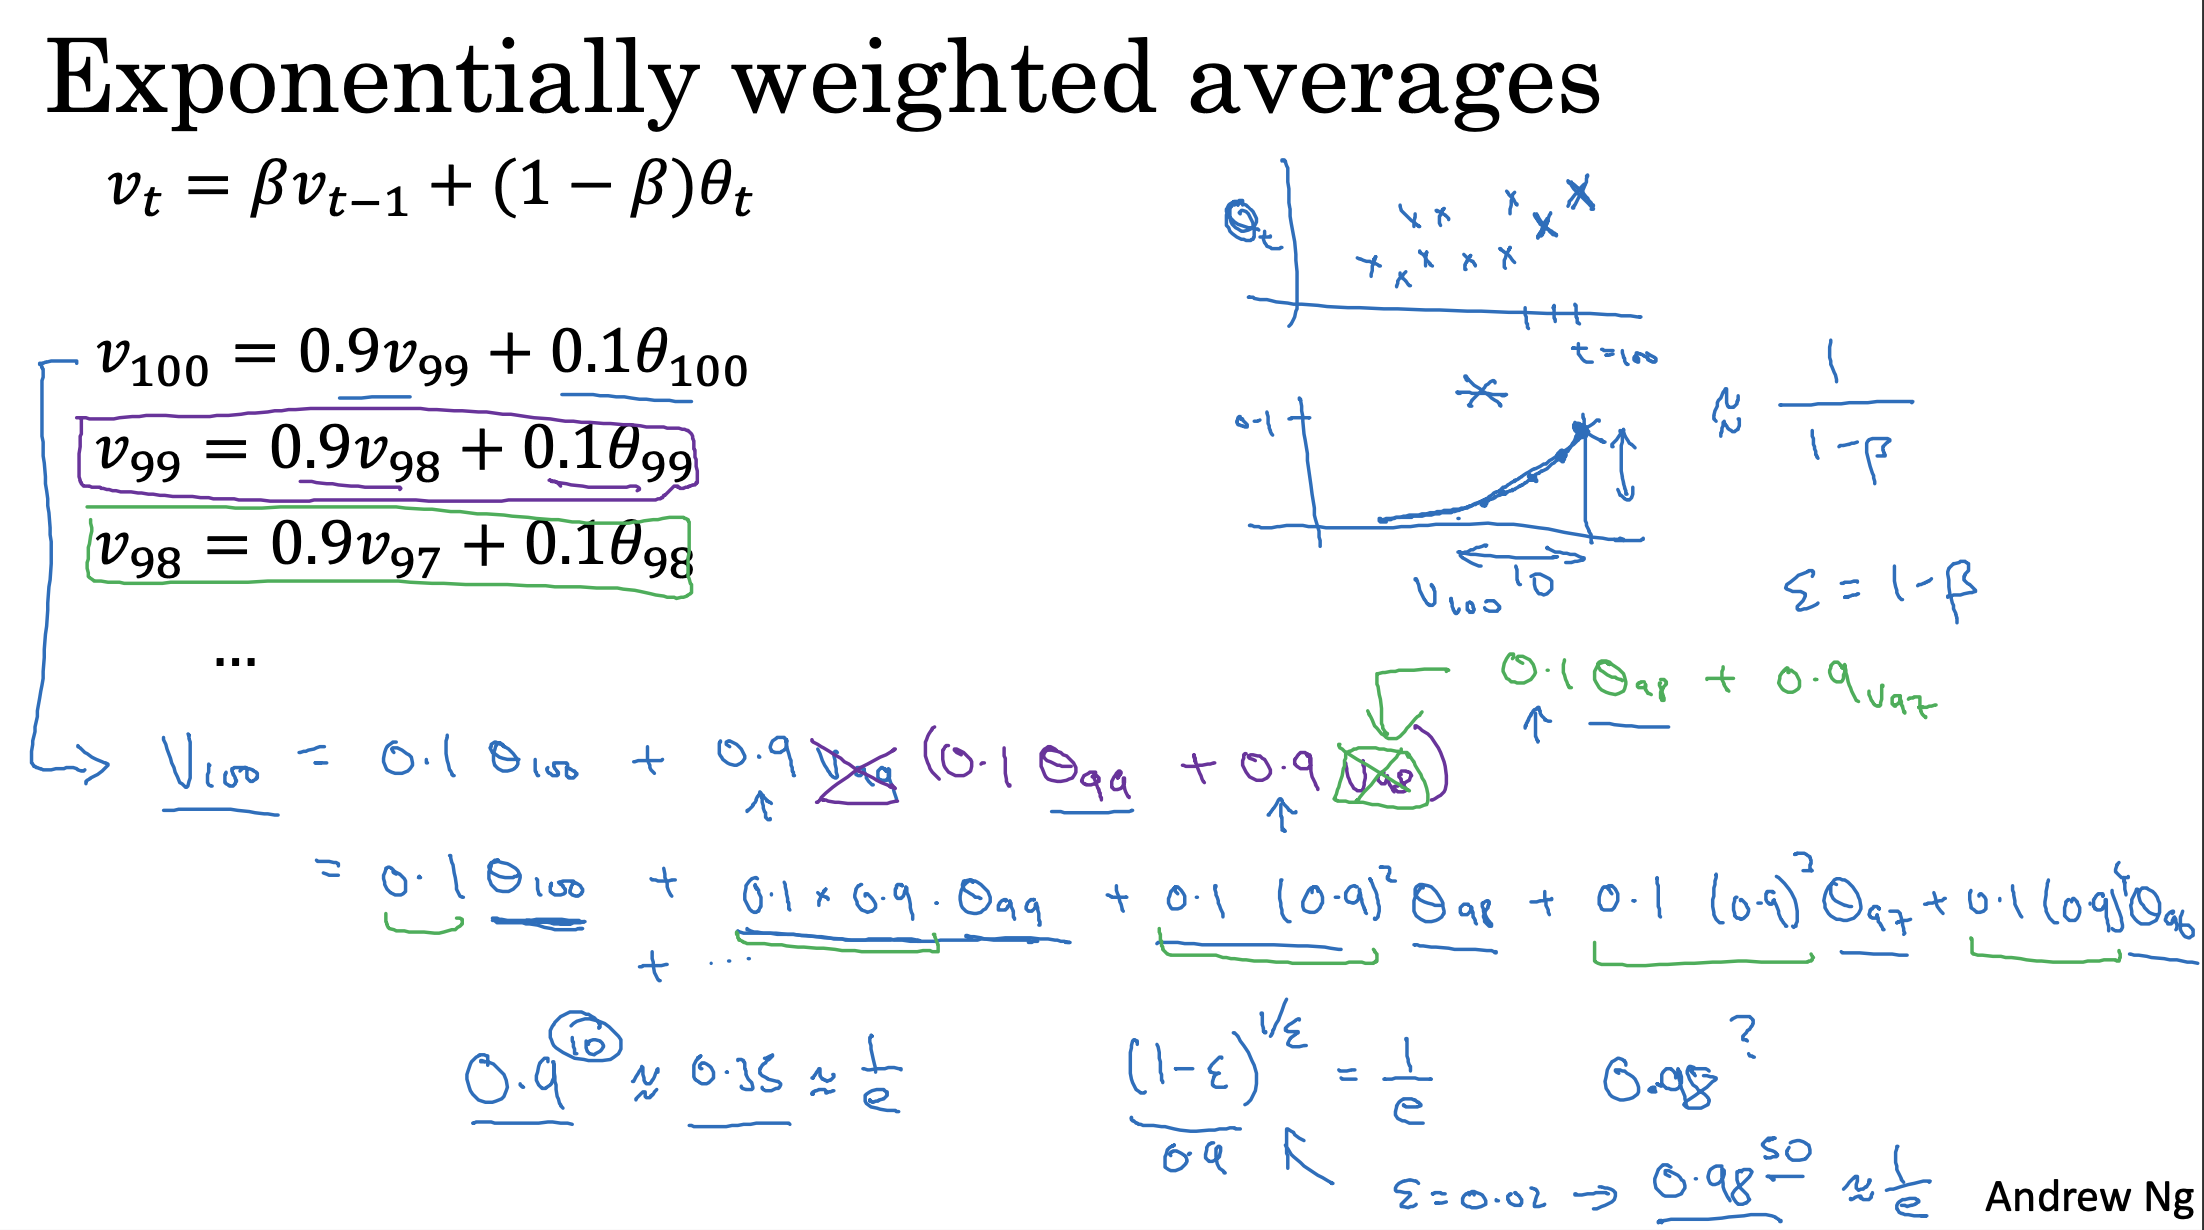 Exponentially weighted averages
v_t = βv_{t−1} + (1 − β)θ_t
θ_t
t=100
v_100 = 0.9v_99 + 0.1θ_100
v_99 = 0.9v_98 + 0.1θ_99
v_98 = 0.9v_97 + 0.1θ_98
...
0.1
≈ 1/(1-β)
10
V_100
ε = 1-β
0.1 θ_98 + 0.9 v_97
V_100 = 0.1 θ_100 + 0.9 V_99 (0.1 θ_99 + 0.9 V_98)
= 0.1 θ_100 + 0.1 × 0.9 · θ_99 + 0.1 (0.9)² θ_98 + 0.1 (0.9)³ θ_97 + 0.1 (0.9)⁴ θ_96
+ ...
0.9^10 ≈ 0.35 ≈ 1/e
(1-ε)^{1/ε} = 1/e
0.9
0.98^?
ε = 0.02 → 0.98^50 ≈ 1/e
Andrew Ng